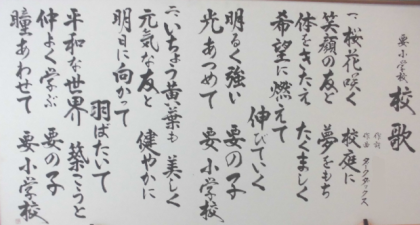 要小学校 校歌
作詞
作曲 ダークダックス
一、桜花咲く 校庭に
笑顔の友と 夢をもち
体をきたえ たくましく
希望に燃えて
伸びていく
明るく強い 要の子
光あつめて 要小学校
二、いちょう黄葉も 美しく
元気な友と 健やかに
明日に向かって
羽ばたいて
平和な世界 築こうと
仲よく学ぶ 要の子
瞳あわせて 要小学校